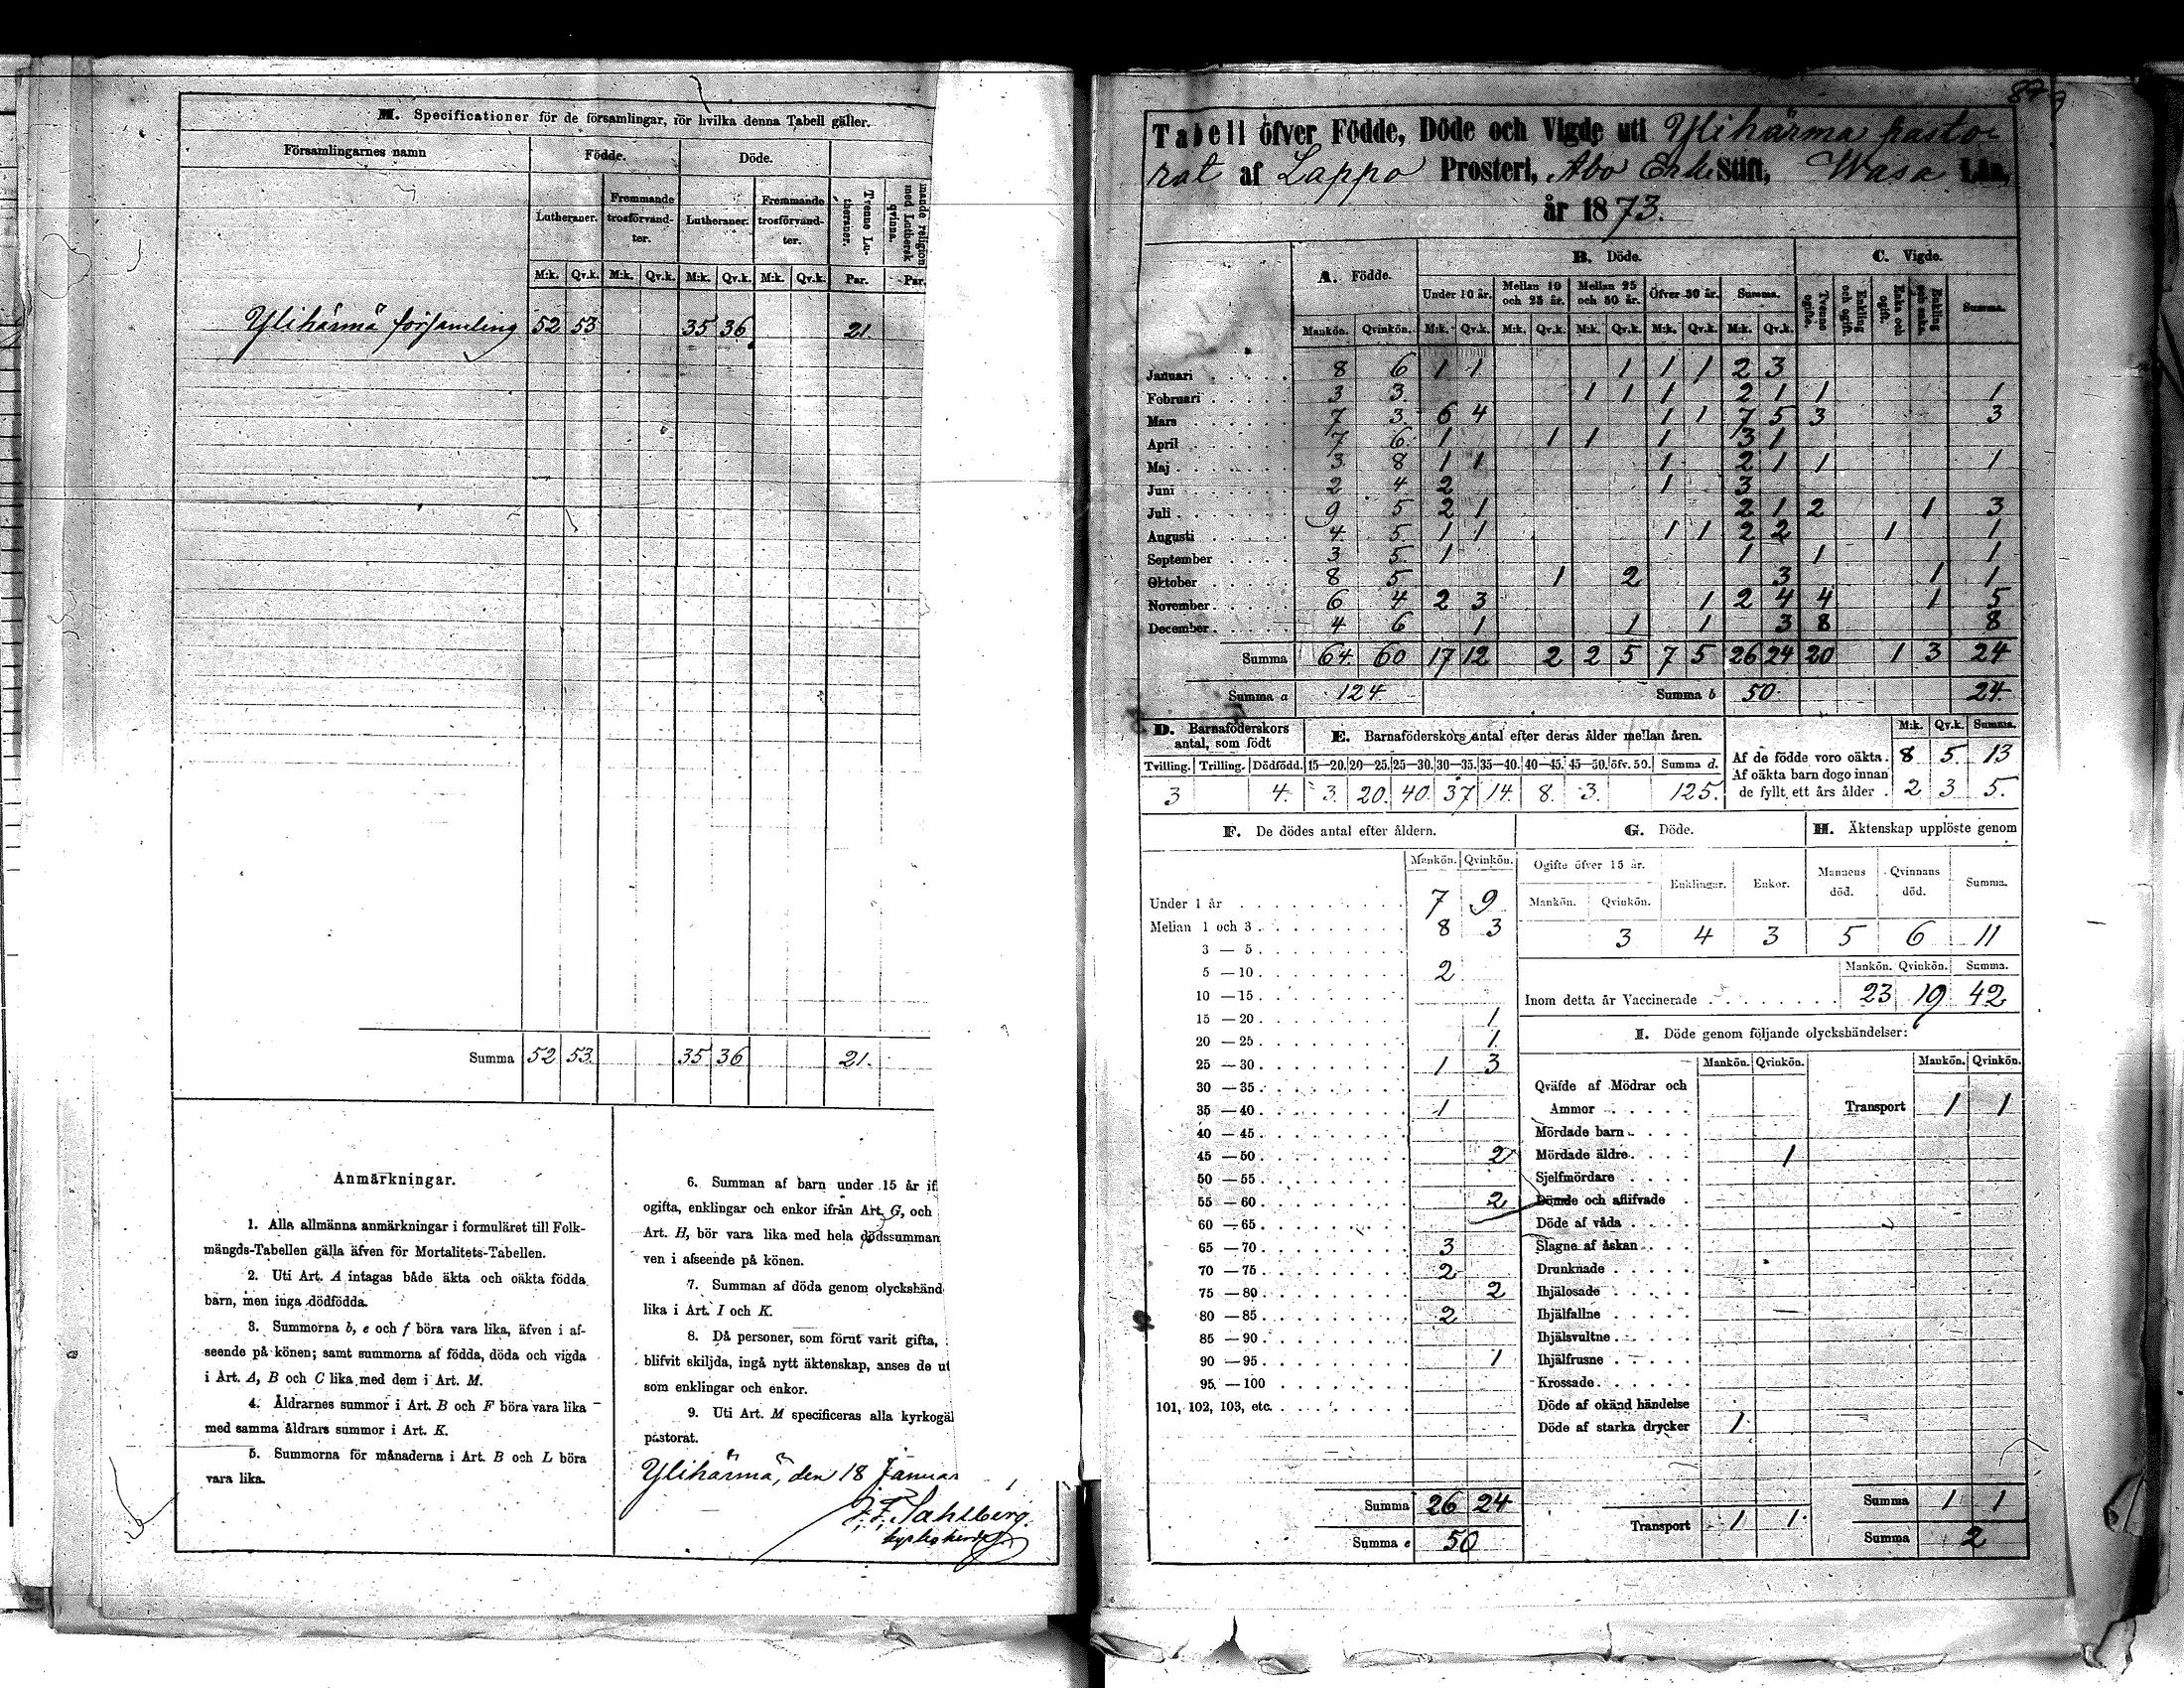 M. Specificationer för de församlingar, för hvilka denna Tabell gäller.
Församlingarnes namn Födde. Döde.
Lutheraner. Fremmande trosförvandter. Lutheraner. Fremmande trosförvandter. Tvenne Lutheraner. mande religion med Luthersk qvinna.
M:k. Qv.k. M:k. Qv.k. M:k. Qv.k. M:k. Qv.k. Par. Par.
Ylihärmä församling 52 53 35 36 21.
Summa 52 53. 35 36 21.
Anmärkningar.
1. Alla allmänna anmärkningar i formuläret till Folk-
mängds-Tabellen gälla äfven för Mortalitets-Tabellen.
2. Uti Art. A intagas både äkta och oäkta födda
barn, men inga dödfödda.
3. Summorna b, e och f böra vara lika, äfven i af-
seende på könen; samt summorna af födda, döda och vigda
i Art. A, B och C lika med dem i Art. M.
4. Åldrarnes summor i Art. B och F böra vara lika
med samma åldrars summor i Art. K.
5. Summorna för månaderna i Art. B och L böra
vara lika.
6. Summan af barn under 15 år if
ogifta, enklingar och enkor ifrån Art. G, och
Art. H, bör vara lika med hela dödssumman
ven i afseende på könen.
7. Summan af döda genom olyckshänd
lika i Art. I och K.
8. Då personer, som förut varit gifta,
blifvit skiljda, ingå nytt äktenskap, anses de ut
som enklingar och enkor.
9. Uti Art. M specificeras alla kyrkogäl
pastorat.
Ylihärmä, den 18 Januar
J. F. Sahlberg.
kyrkoherde
Tabell öfver Födde, Döde och Vigde uti Ylihärma pasto
rat af Lappo Prosteri, Åbo Erke Stift, Wasa Län,
år 1873.
A. Födde. B. Döde. C. Vigde.
Under 10 år. Mellan 10 och 25 år. Mellan 25 och 50 år. Öfver 50 år. Summa. Tvenne ogifte. Enkling och ogift. Enka och ogift. Enkling och enka. Summa.
Mankön. Qvinkön. M:k. Qv.k. M:k. Qv.k. M:k. Qv.k. M:k. Qv.k. M:k. Qv.k.
Januari 8 6 1 1 1 1 1 2 3
Februari 3 3. 1 1 1 2 1 1 1
Mars 7 3 6 4 1 1 7 5 3 3
April 7 6. 1 1 1 1 3 1
Maj 3 8 1 1 1 2 1 1 1
Juni 2 4 2 1 3
Juli 9 5 2 1 2 1 2 1 3
Augusti 4. 5. 1 1 1 1 2 2 1 1
September 3 5 1 1 1 1
Oktober 8 5 1 2 3 1 1
November 6 4 2 3 1 2 4 4 1 5
December 4 6 1 1 1 3 8 8
Summa 64. 60 17 12 2 2 5 7 5 26 24 20 1 3 24
Summa a 124 Summa b 50 24.
D. Barnaföderskors antal, som födt
Tvilling. Trilling. Dödfödd.
3 4.
E. Barnaföderskors antal efter deras ålder mellan åren.
15—20. 20—25. 25—30. 30—35. 35—40. 40—45. 45—50. öfv. 50. Summa d.
3. 20. 40. 37 14. 8. 3. 125.
M:k. Qv.k. Summa.
Af de födde voro oäkta. 8 5. 13
Af oäkta barn dogo innan
de fyllt ett års ålder. 2 3 5.
F. De dödes antal efter åldern.
Mankön. Qvinkön.
Under 1 år 7 9
Mellan 1 och 3 8 3
3 — 5
5 — 10 2
10 — 15
15 — 20 1
20 — 25 1
25 — 30 1 3
30 — 35
35 — 40 1
40 — 45
45 — 50 2
50 — 55
55 — 60 2
60 — 65
65 — 70 3
70 — 75 2
75 — 80 2
80 — 85 2
85 — 90
90 — 95 1
95 — 100
101, 102, 103, etc.
Summa 26 24
Summa e 50
G. Döde.
Ogifte öfver 15 år. Enklingar. Enkor.
Mankön. Qvinkön.
3 4 3
H. Äktenskap upplöste genom
Mannens död. Qvinnans död. Summa.
5 6 11
Mankön. Qvinkön. Summa.
Inom detta år Vaccinerade 23 19 42
I. Döde genom följande olyckshändelser:
Mankön. Qvinkön. Mankön. Qvinkön.
Qväfde af Mödrar och
Ammor Transport 1 1
Mördade barn
Mördade äldre 1
Sjelfmördare
Dömde och aflifvade
Döde af våda
Slagne af åskan
Drunknade
Ihjälosade
Ihjälfallne
Ihjälsvultne
Ihjälfrusne
Krossade
Döde af okänd händelse
Döde af starka drycker 1
Summa 1 1
Transport 1 1
Summa 2